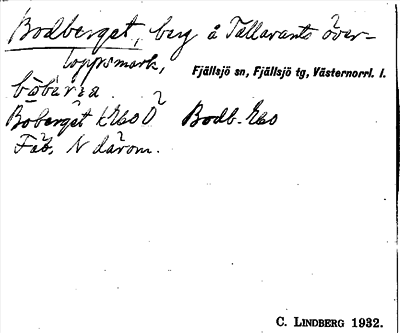 Bodberget, berg å Tallavants över-
loppsmark,
Fjällsjö sn, Fjällsjö tg, Västernorrl. l.
Boberget Bodb.
Fäb, N därom.
C. LINDBERG 1932.